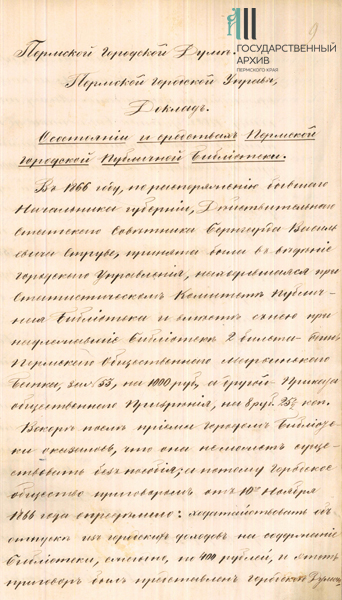 9
ГОСУДАРСТВЕННЫЙ
АРХИВ
ПЕРМСКОГО КРАЯ
Пермской Городской Думѣ.
Пермской Городской Управы,
Докладъ.
О состояніи и средствахъ Пермской
городской Публичной библіотеки.
Въ 1866 году, по распоряженію бывшаго
Начальника губерніи, Дѣйствительнаго
статскаго Совѣтника Бернгарда Василь
евича Струве, принята была в вѣдѣніе
городскаго Управленія, находившаяся при
Статистическомъ Комитетѣ Публич-
ная библіотека и вмѣстѣ съ нею при
надлежавшіе библіотекѣ 2 билета: банка
Пермскаго Общественнаго Марьинскаго
Банка, за № 53, на 1000 руб., а другой Приказа
общественнаго Призрѣнія, на 8 руб. 25 коп.
Вскорѣ послѣ пріема городомъ библіоте-
ки оказалось, что она не можетъ суще-
ствовать безъ пособія; а потому городское
общество приговоромъ отъ 10го Ноября
1866 года опредѣлило: ходатайствовать объ
отпускѣ изъ городскихъ доходовъ на содержаніе
библіотеки, ежегодно, по 400 рублей, и этотъ
приговоръ былъ представленъ городской Думою